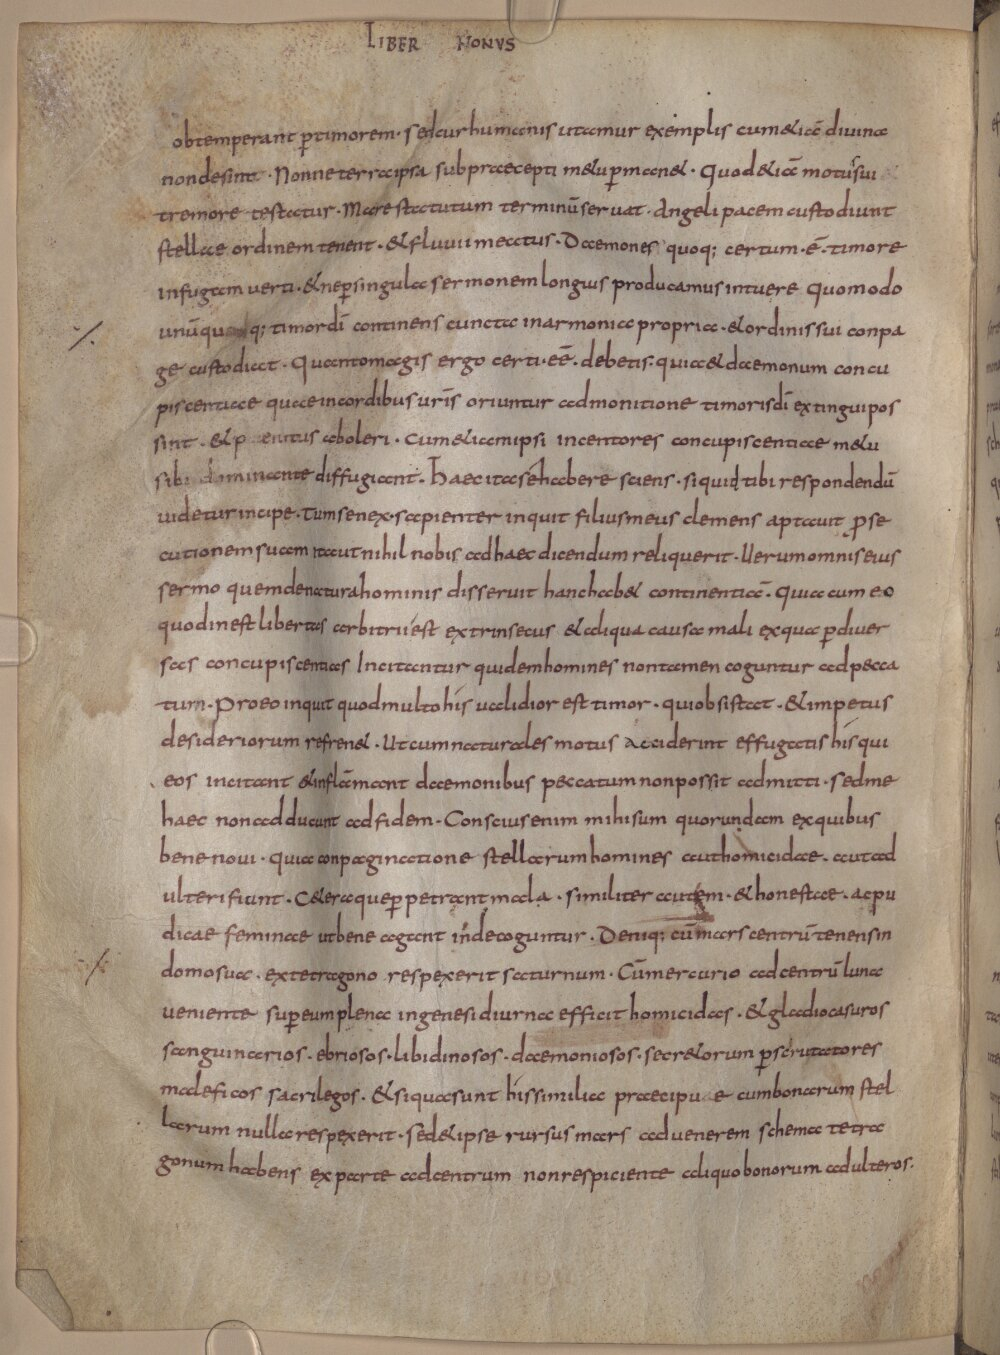 LIBER NONVS
obtemperant ꝑtimorem · sed cur humanis utamur exemplis cum & iā diuina
non desint · Nonne terra ipsa sub praecepti metu ꝑman& · Quod & iā motus sui
tremore testatur · Mare statutum terminū seruat · Angeli pacem custodiunt
stellae ordinem tenent · & fluuii meatus · Daemones quoq; certum · ē · timore
in fugam uerti · & ne ꝑ singula sermonem longius producamus intuere quomodo
unūquodq; timor dī continens cuncta in armonia propria · & ordinis sui conpa
ge custodiat · Quanto magis ergo certi · eē · debetis · quia & daemonum concu
piscentiae quae in cordibus urīs oriuntur admonitione timoris dī extingui pos
sint · & penitus aboleri · cum & iam ipsi incentores concupiscentiae metu
sibi dominante diffugiant · Haec ita se habere sciens · si quid tibi respondendū
uidetur incipe · Tum senex · sapienter inquit filius meus clemens aptauit ꝓse
cutionem suam ita ut nihil nobis ad haec dicendum reliquerit · Uerum omnis eius
sermo quem de natura hominis disseruit hanc hab& continentiā · Quia cum eo
quod inest libertas arbitrii est extrinsecus & aliqua causa mali ex qua ꝑ diuer
sas concupiscentias Incitantur quidem homines non tamen coguntur ad pecca
tum · Pro eo inquit quod multo his ualidior est timor · qui obsistat · & impetus
desideriorum refren& · Ut cum naturales motus acciderint effugatis his qui
eos incitant & inflāmant daemonibus peccatum non possit admitti · sed me
haec non adducunt ad fidem · Conscius enim mihi sum quorundam ex quibus
bene noui · quia conpaginatione stellarum homines aut homicidae · aut ad
ulteri fiunt · C&eraque ꝑpetrant mala · similiter autem · & honestae · ac pu
dicae feminae ut bene agant inde coguntur · Deniq; cū mars centrū tenens in
domo sua · ex tetragono respexerit saturnum · Cū mercurio ad centrū luna
ueniente super eum plena in genesi diurna efficit homicidas · & gladio casuros
sanguinarios · ebriosos · libidinosos · daemoniosos · secr&orum ꝑscrutatores
maleficos sacrilegos · & si qua sunt his similia praecipue cum bonarum stel
larum nulla respexerit · sed & ipse rursus mars ad uenerem schema tetra
gonum habens ex parte ad centrum non respiciente aliquo bonorum adulteros ·